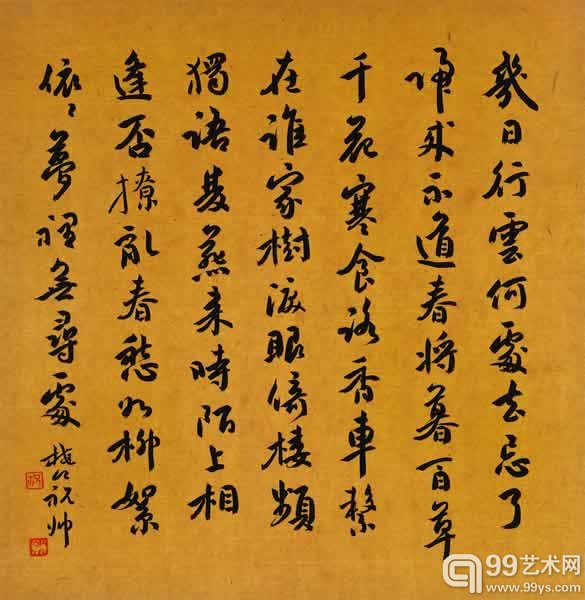 幾日行雲何處去忘了
歸來不道春將暮百草
千花寒食路香車繫
在誰家樹淚眼倚樓頻
獨語雙燕來時陌上相
逢否撩亂春愁如柳絮
依〻夢裡無尋處
祝帅
99艺术网
www.99ys.com